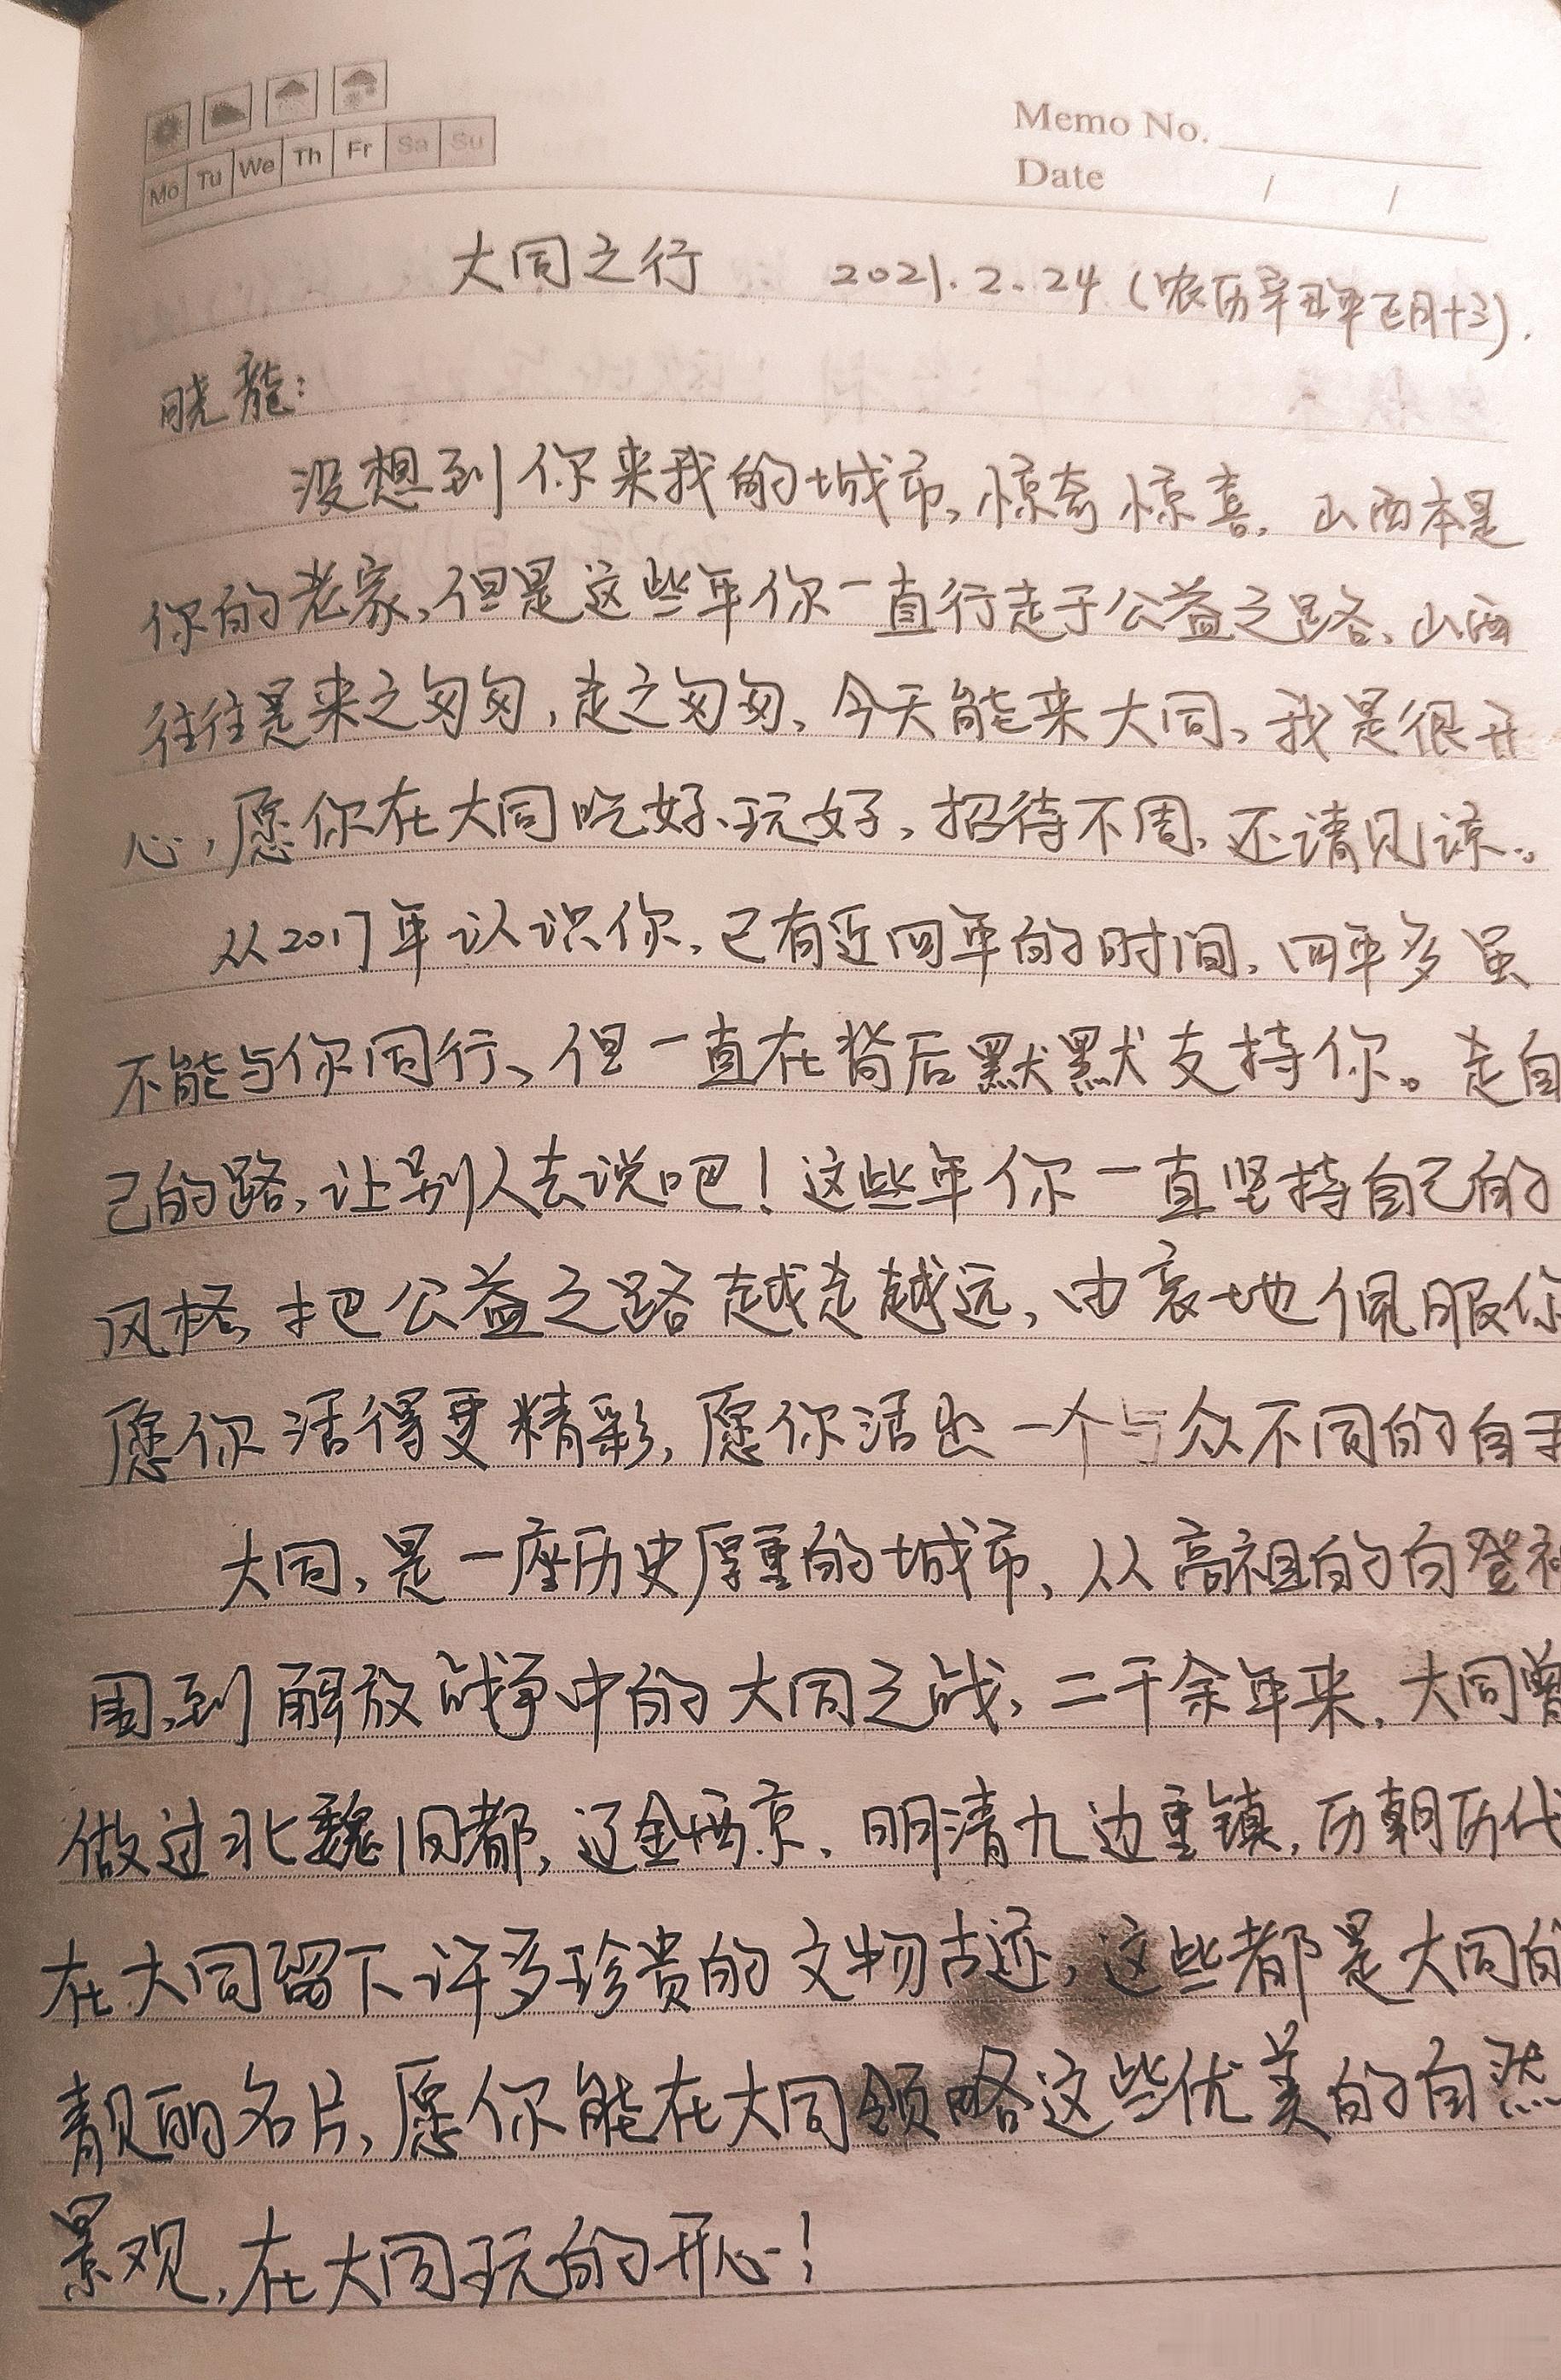 Memo No.
Mo Tu We Th Fr Sa Su
Date / /
大同之行 2021.2.24（农历辛丑年正月十三）.
晓龍：
没想到你来我的城市，惊奇惊喜，山西本是
你的老家，但是这些年你一直行走于公益之路、山西
往往是来之匆匆，走之匆匆，今天能来大同，我是很开
心，愿你在大同吃好、玩好，招待不周，还请见谅。
从2017年认识你，已有近四年的时间，四年多虽
不能与你同行、但一直在背后默默支持你。走自
己的路，让别人去说吧！这些年你一直坚持自己的
风格，把公益之路越走越远，由衷地佩服你
愿你活得更精彩，愿你活出一个与众不同的自
大同，是一座历史厚重的城市，从高祖的白登
围，到解放战争中的大同之战，二千余年来，大同曾
做过北魏旧都，辽金西京、明清九边重镇，历朝历代
在大同留下许多珍贵的文物古迹，这些都是大同的
靓丽名片，愿你能在大同领略这些优美的自然
景观，在大同玩的开心！